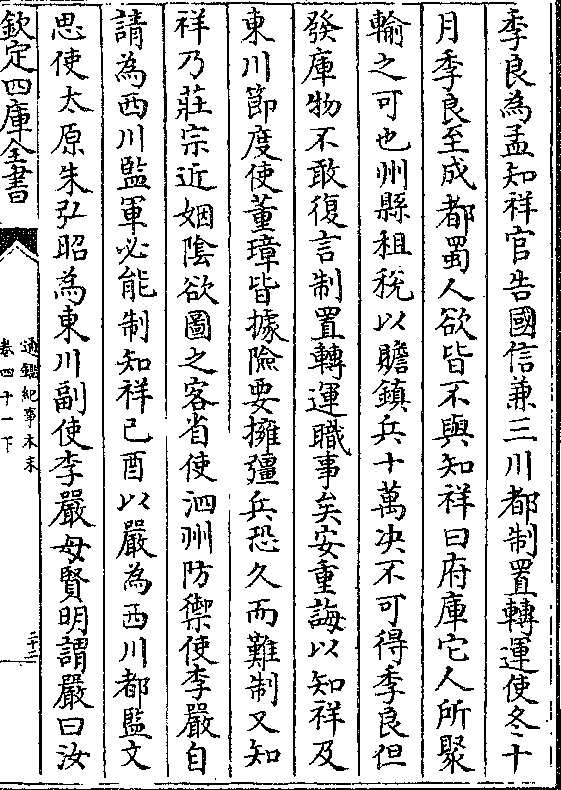 季良為孟知祥官告國信兼三川都制置轉運使冬十
月季良至成都蜀人欲皆不與知祥曰府庫它人所聚
輸之可也州縣租稅以贍鎮兵十萬决不可得季良但
發庫物不敢復言制置轉運職事矣安重誨以知祥及
東川節度使董璋皆據險要擁彊兵恐久而難制又知
祥乃莊宗近姻陰欲圖之客省使泗州防禦使李嚴自
請為西川監軍必能制知祥己酉以嚴為西川都監文
思使太原朱弘昭為東川副使李嚴母賢明謂嚴曰汝
欽定四庫全書
通鑑紀事本末
卷四十一下
三十二